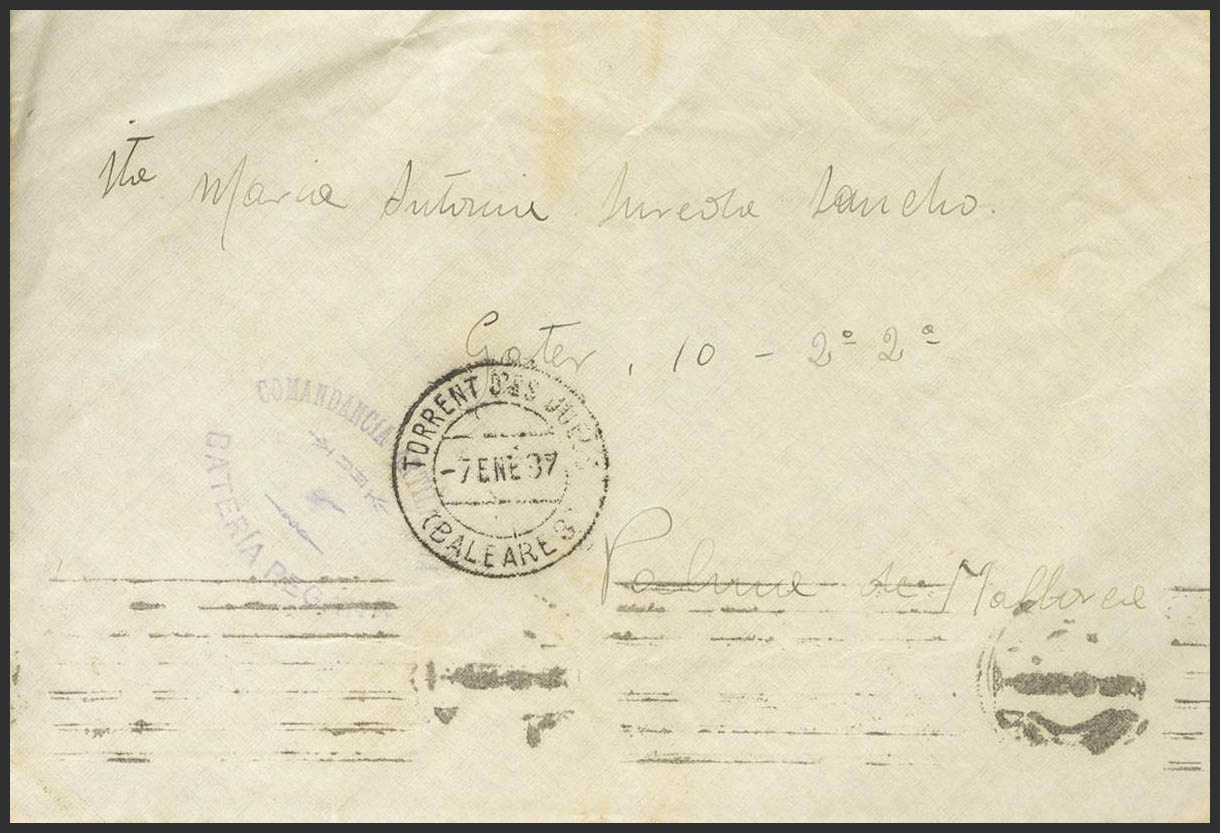 Srta Maria Antonia Sureda Sancho.
Gater, 10 - 2º 2ª
COMANDANCIA
BATERÍA
TORRENT D'ES
-7 ENE 37
(BALEARES)
Palma de Mallorca